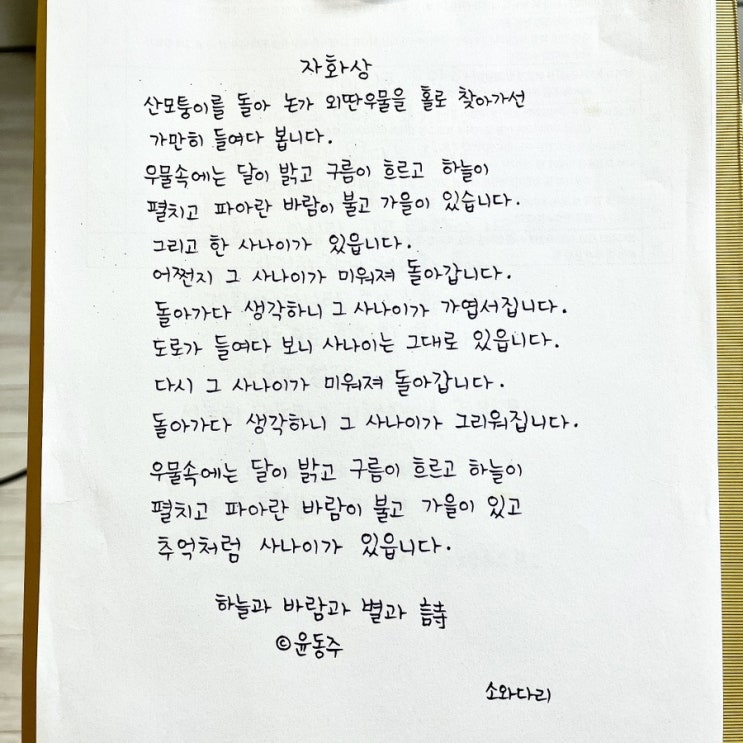 자화상
산모퉁이를 돌아 논가 외딴우물을 홀로 찾아가선
가만히 들여다 봅니다.
우물속에는 달이 밝고 구름이 흐르고 하늘이
펼치고 파아란 바람이 불고 가을이 있습니다.
그리고 한 사나이가 있읍니다.
어쩐지 그 사나이가 미워져 돌아갑니다.
돌아가다 생각하니 그 사나이가 가엽서집니다.
도로가 들여다 보니 사나이는 그대로 있읍니다.
다시 그 사나이가 미워져 돌아갑니다.
돌아가다 생각하니 그 사나이가 그리워집니다.
우물속에는 달이 밝고 구름이 흐르고 하늘이
펼치고 파아란 바람이 불고 가을이 있고
추억처럼 사나이가 있읍니다.
하늘과 바람과 별과 詩
©윤동주
소와다리